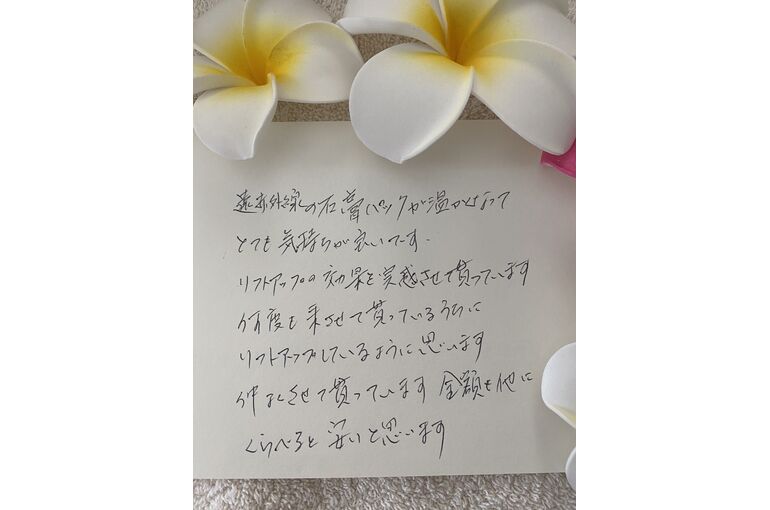 遠赤外線の石膏パックが温かくなって
とても気持ちが良いです.
リフトアップの効果を実感させて貰っています
何度も来させて貰っているうちに
リフトアップしているように思います
仲よくさせて貰っています 金額も他に
くらべると安いと思います